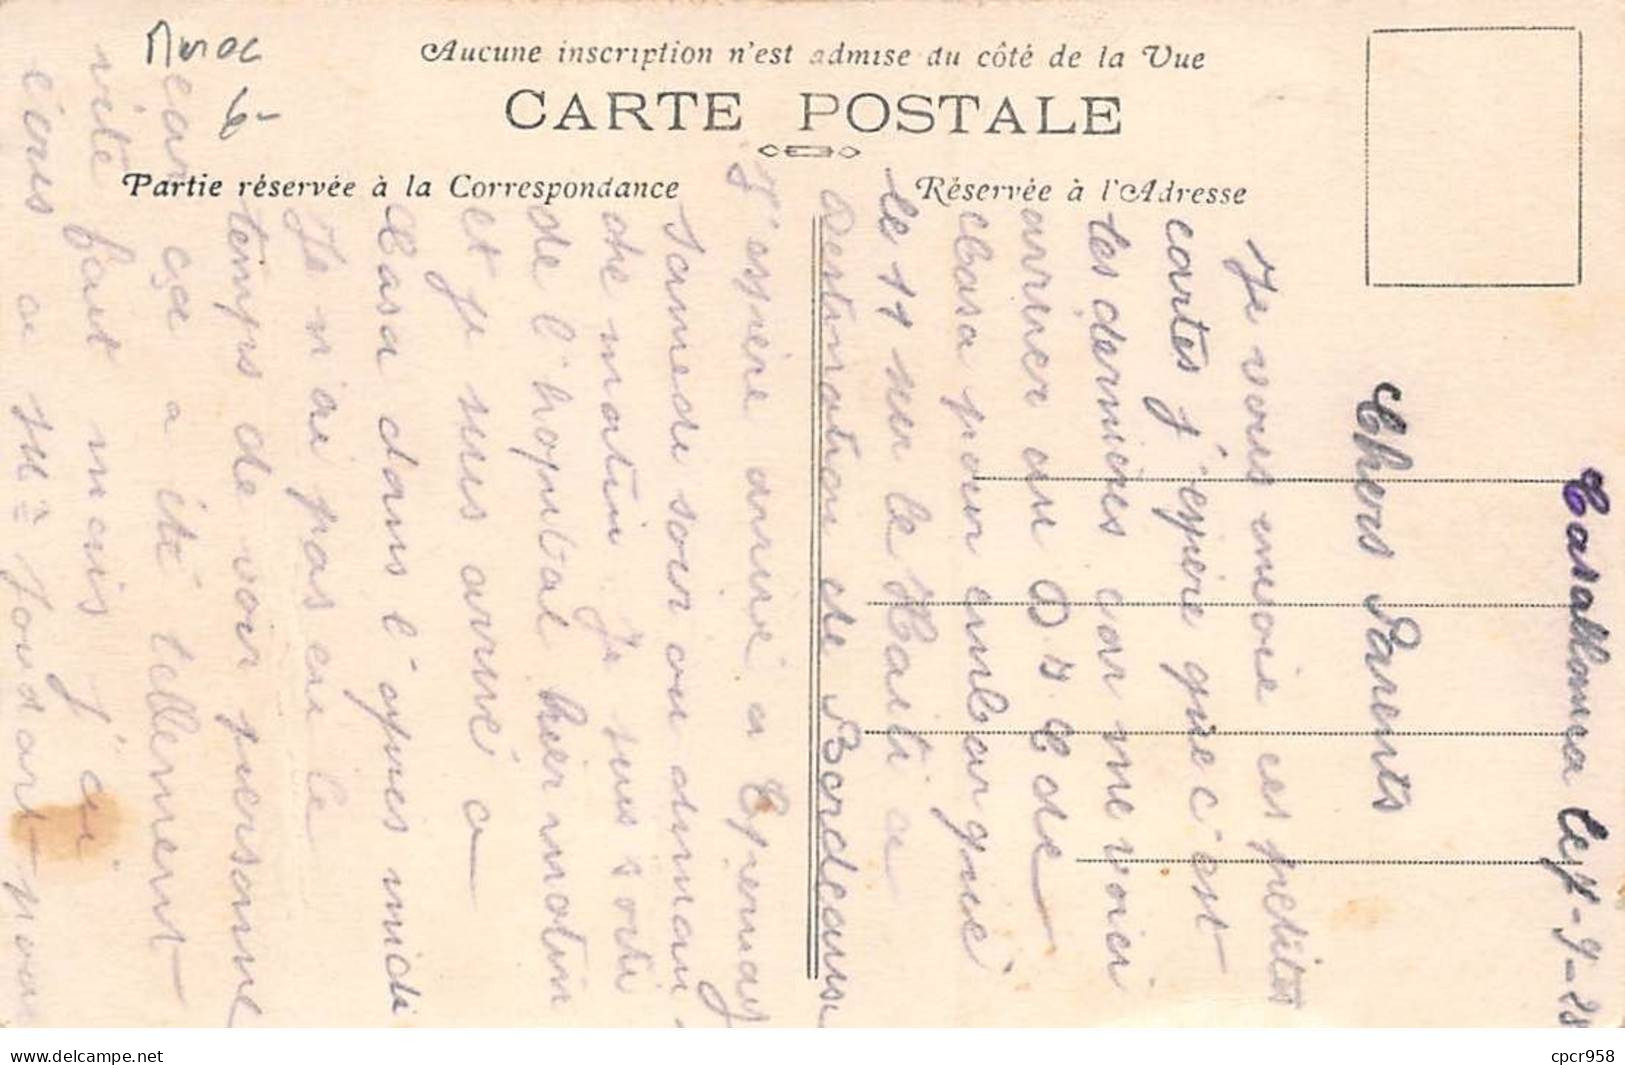 Maroc
6-
Aucune inscription n'est admise du côté de la Vue
CARTE POSTALE
Partie réservée à la Correspondance
Réservée à l'Adresse
Casablanca le 7-9-28
Chers Parents
Je vous envoie ces petites
cartes j'espère que c'est
les dernières car me voici
arriver au D.I.C de
Casa pour embarquué
le 11 sur le Haïti a
destination de Bordeaux
J'espère arrivé a Epernay
samedi soir ou dimanc
che matin. Je suis sorti
de l'hopital hier matin
et je suis arrivé a
Casa dans l'apres midi
Je n'ai pas eu le
temps de voir personne
car ça a été tellement
vite fait mais j'ai
écris a Mme